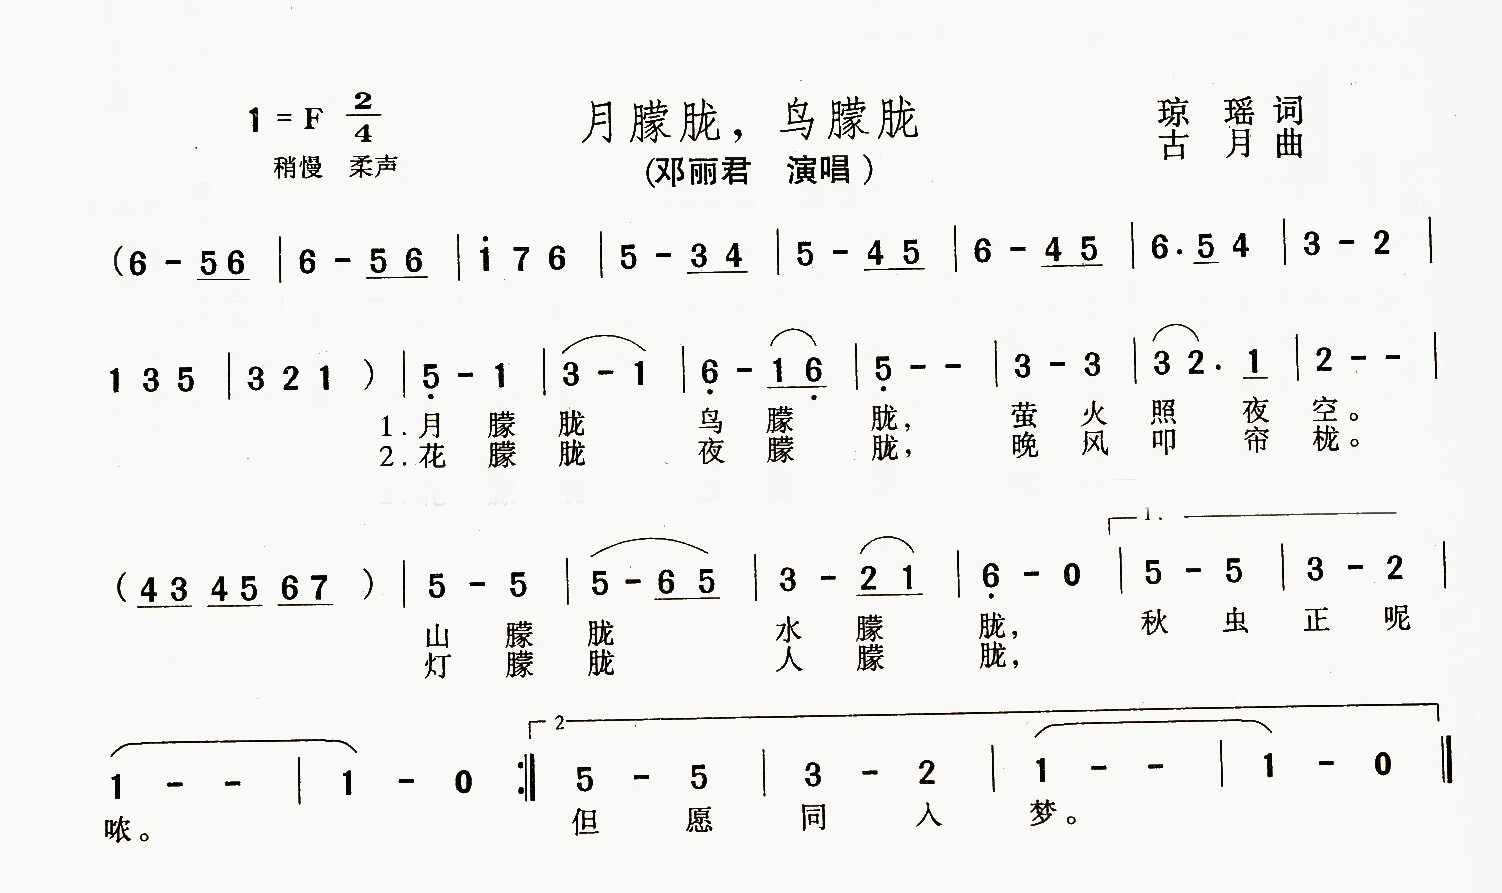 1 = F 2/4 月朦胧，鸟朦胧 琼 瑶 词
稍慢 柔声 (邓丽君 演唱) 古 月 曲
(6 - 56 | 6 - 56 | i̇ 7 6 | 5 - 34 | 5 - 45 | 6 - 45 | 6. 5 4 | 3 - 2 |
1 3 5 | 3 2 1 ) | 5̣ - 1 | 3 - 1 | 6̣ - 16̣ | 5̣ - - | 3 - 3 | 3 2. 1 | 2 - - |
1.月 朦 胧 鸟 朦 胧， 萤 火 照 夜 空。
2.花 朦 胧 夜 朦 胧， 晚 风 叩 帘 栊。
( 43 45 67 ) | 5 - 5 | 5 - 65 | 3 - 21 | 6̣ - 0 | 1. 5 - 5 | 3 - 2 |
山 朦 胧 水 朦 胧， 秋 虫 正 呢
灯 朦 胧 人 朦 胧，
1 - - | 1 - 0 :‖ 2 5 - 5 | 3 - 2 | 1 - - | 1 - 0 ‖
哝。 但 愿 同 入 梦。